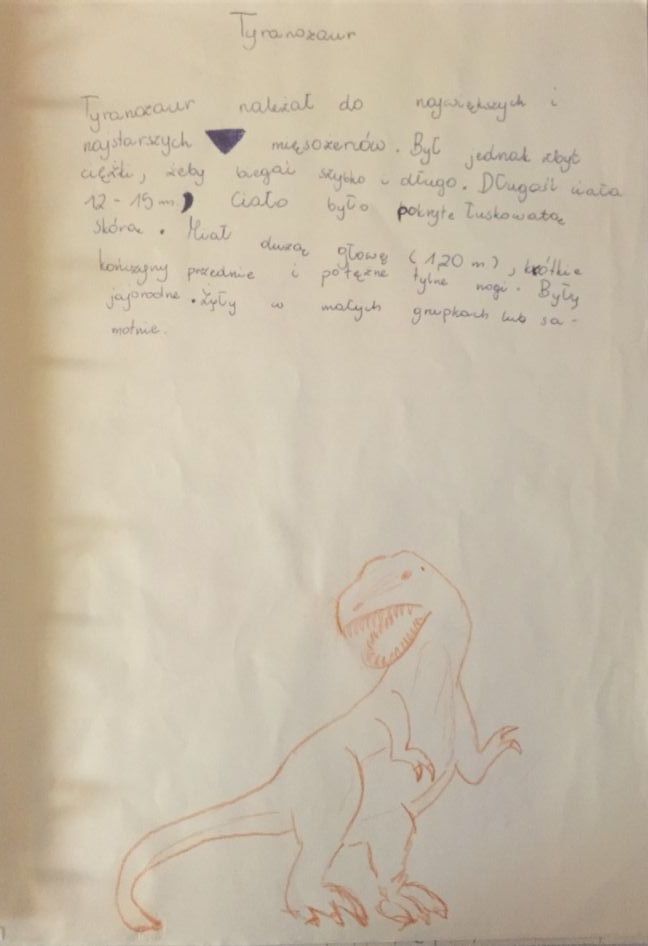 Tyranozaur
Tyranozaur należał do największych i
najstarszych mięsożenów. Był jednak zbyt
ciężki, żeby biegać szybko i długo. Długość ciała
12-15 m. Ciało było pokryte łuskowatą
skórą. Miał dużą głowę (1,20 m), krótkie
kończyny przednie i potężne tylne nogi. Były
jajorodne. Żyły w małych grupkach lub sa-
motnie.